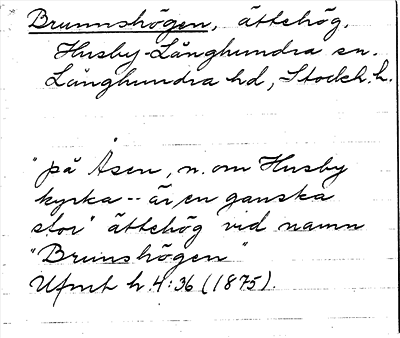 Brunnshögen, ättehög.
Husby-Långhundra sn.
Långhundra hd, Stockh. h.
"på Åsen, n. om Husby
kyrka -- är en ganska
stor" ättehög vid namn
"Brunshögen"
Ufmt h. 4:36 (1875).